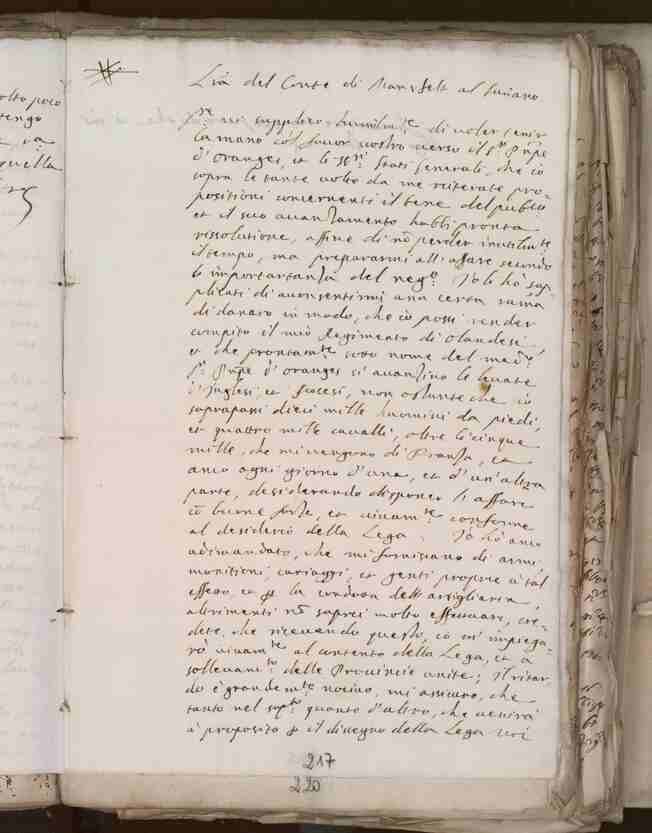 olto poco
tengo
uella
Lrã del Conte di Mansfelt al Suriano
Sre mi supplico humilmte di voler tenir
la mano col favor vostro verso il Sr Prpe
d'Oranges, et le SSri Stati Generali, che cō
sopra le tante volte da me reiterate pro-
positioni concernenti il bene del publico
et il suo avanzamento habbi pronta
rissolutione, affine di nō perder inutilmte
il tempo, ma prepararmi all'affare secondo
la importantanza del nego. Io li hò sup-
plicati di aconsentirmi una certa summa
di danaro in modo, che iò possi render
compito il miò Regimento di Olandesi
et che prontamte sotto nome del medo
Sr Prpe d'Oranges si avanzino le levate
d'Inglesi, et Scocesi, non ostante che iò
soprapassi dieci mille huomini da piedi,
et quattro mille cavalli, oltre li cinque
mille, che mi vengono di Franza, et
anco ogni giorno d'una, et d'un'altra
parte, desiderando disponer li affari
cō buone forze, et vivamte conforme
al desiderio della Lega. Iò hò anco
adimandato, che mi forniscano di armi,
monitioni, cariaggi, et genti proprie à tal
effetto, et per la condotta dell'artigliaria,
altrimenti nō saprei molto effettuare, cre-
dete, che ricevendo questo, iò mi impiega-
rò vivamte al contento della Lega, et à
sollevamto delle Provincie unite; Il ritar-
do è grandemte nocivo, mi assicuro, che
tanto nel sopto quanto d'altro, che venirà
à proposito per il disegno della Lega voi
217
220